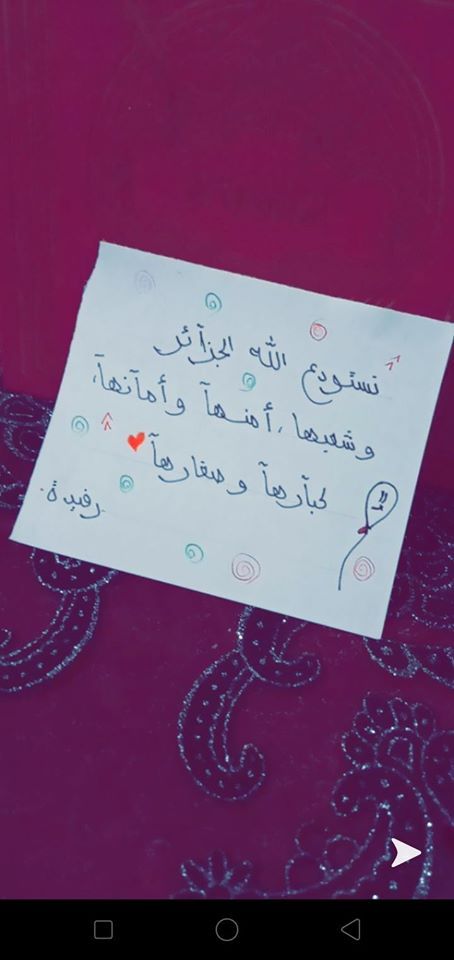 نستودع الله الجزآئر
وشعبها، أمنهآ وأمآنهآ،
كبآرهآ وصغارهآ
رفيدة